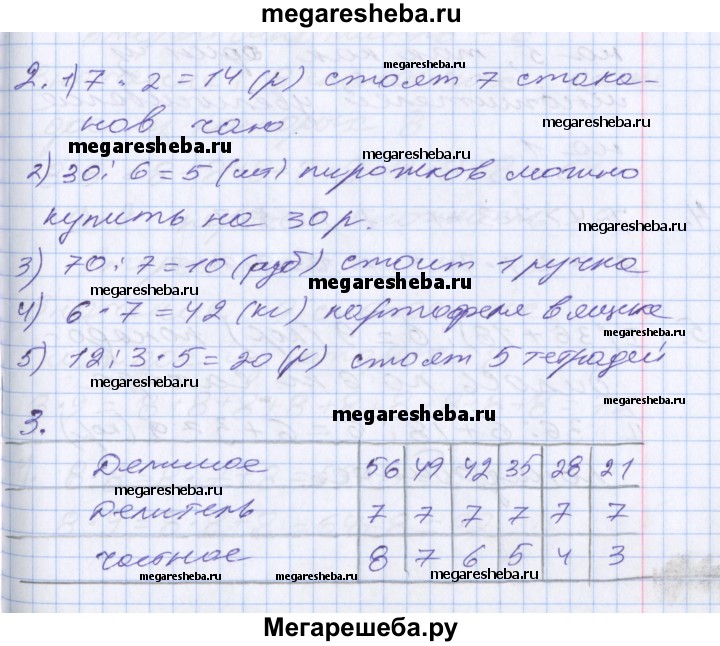 megaresheba.ru
2. 1) 7 · 2 = 14 (р) стоят 7 стака-
megaresheba.ru
нов чаю.
megaresheba.ru
megaresheba.ru
megaresheba.ru
2) 30 : 6 = 5 (шт) пирожков можно
купить на 30 р.
megaresheba.ru
megaresheba.ru
3) 70 : 7 = 10 (руб) стоит 1 ручка
megaresheba.ru
megaresheba.ru
4) 6 · 7 = 42 (кг) картофеля в ящике
megaresheba.ru
5) 12 : 3 · 5 = 20 (р) стоят 5 тетрадей
megaresheba.ru
megaresheba.ru
3.
Делимое 56 49 42 35 28 21
megaresheba.ru
Делитель 7 7 7 7 7 7
частное 8 7 6 5 4 3
megaresheba.ru
megaresheba.ru
megaresheba.ru
Мегарешеба.ру